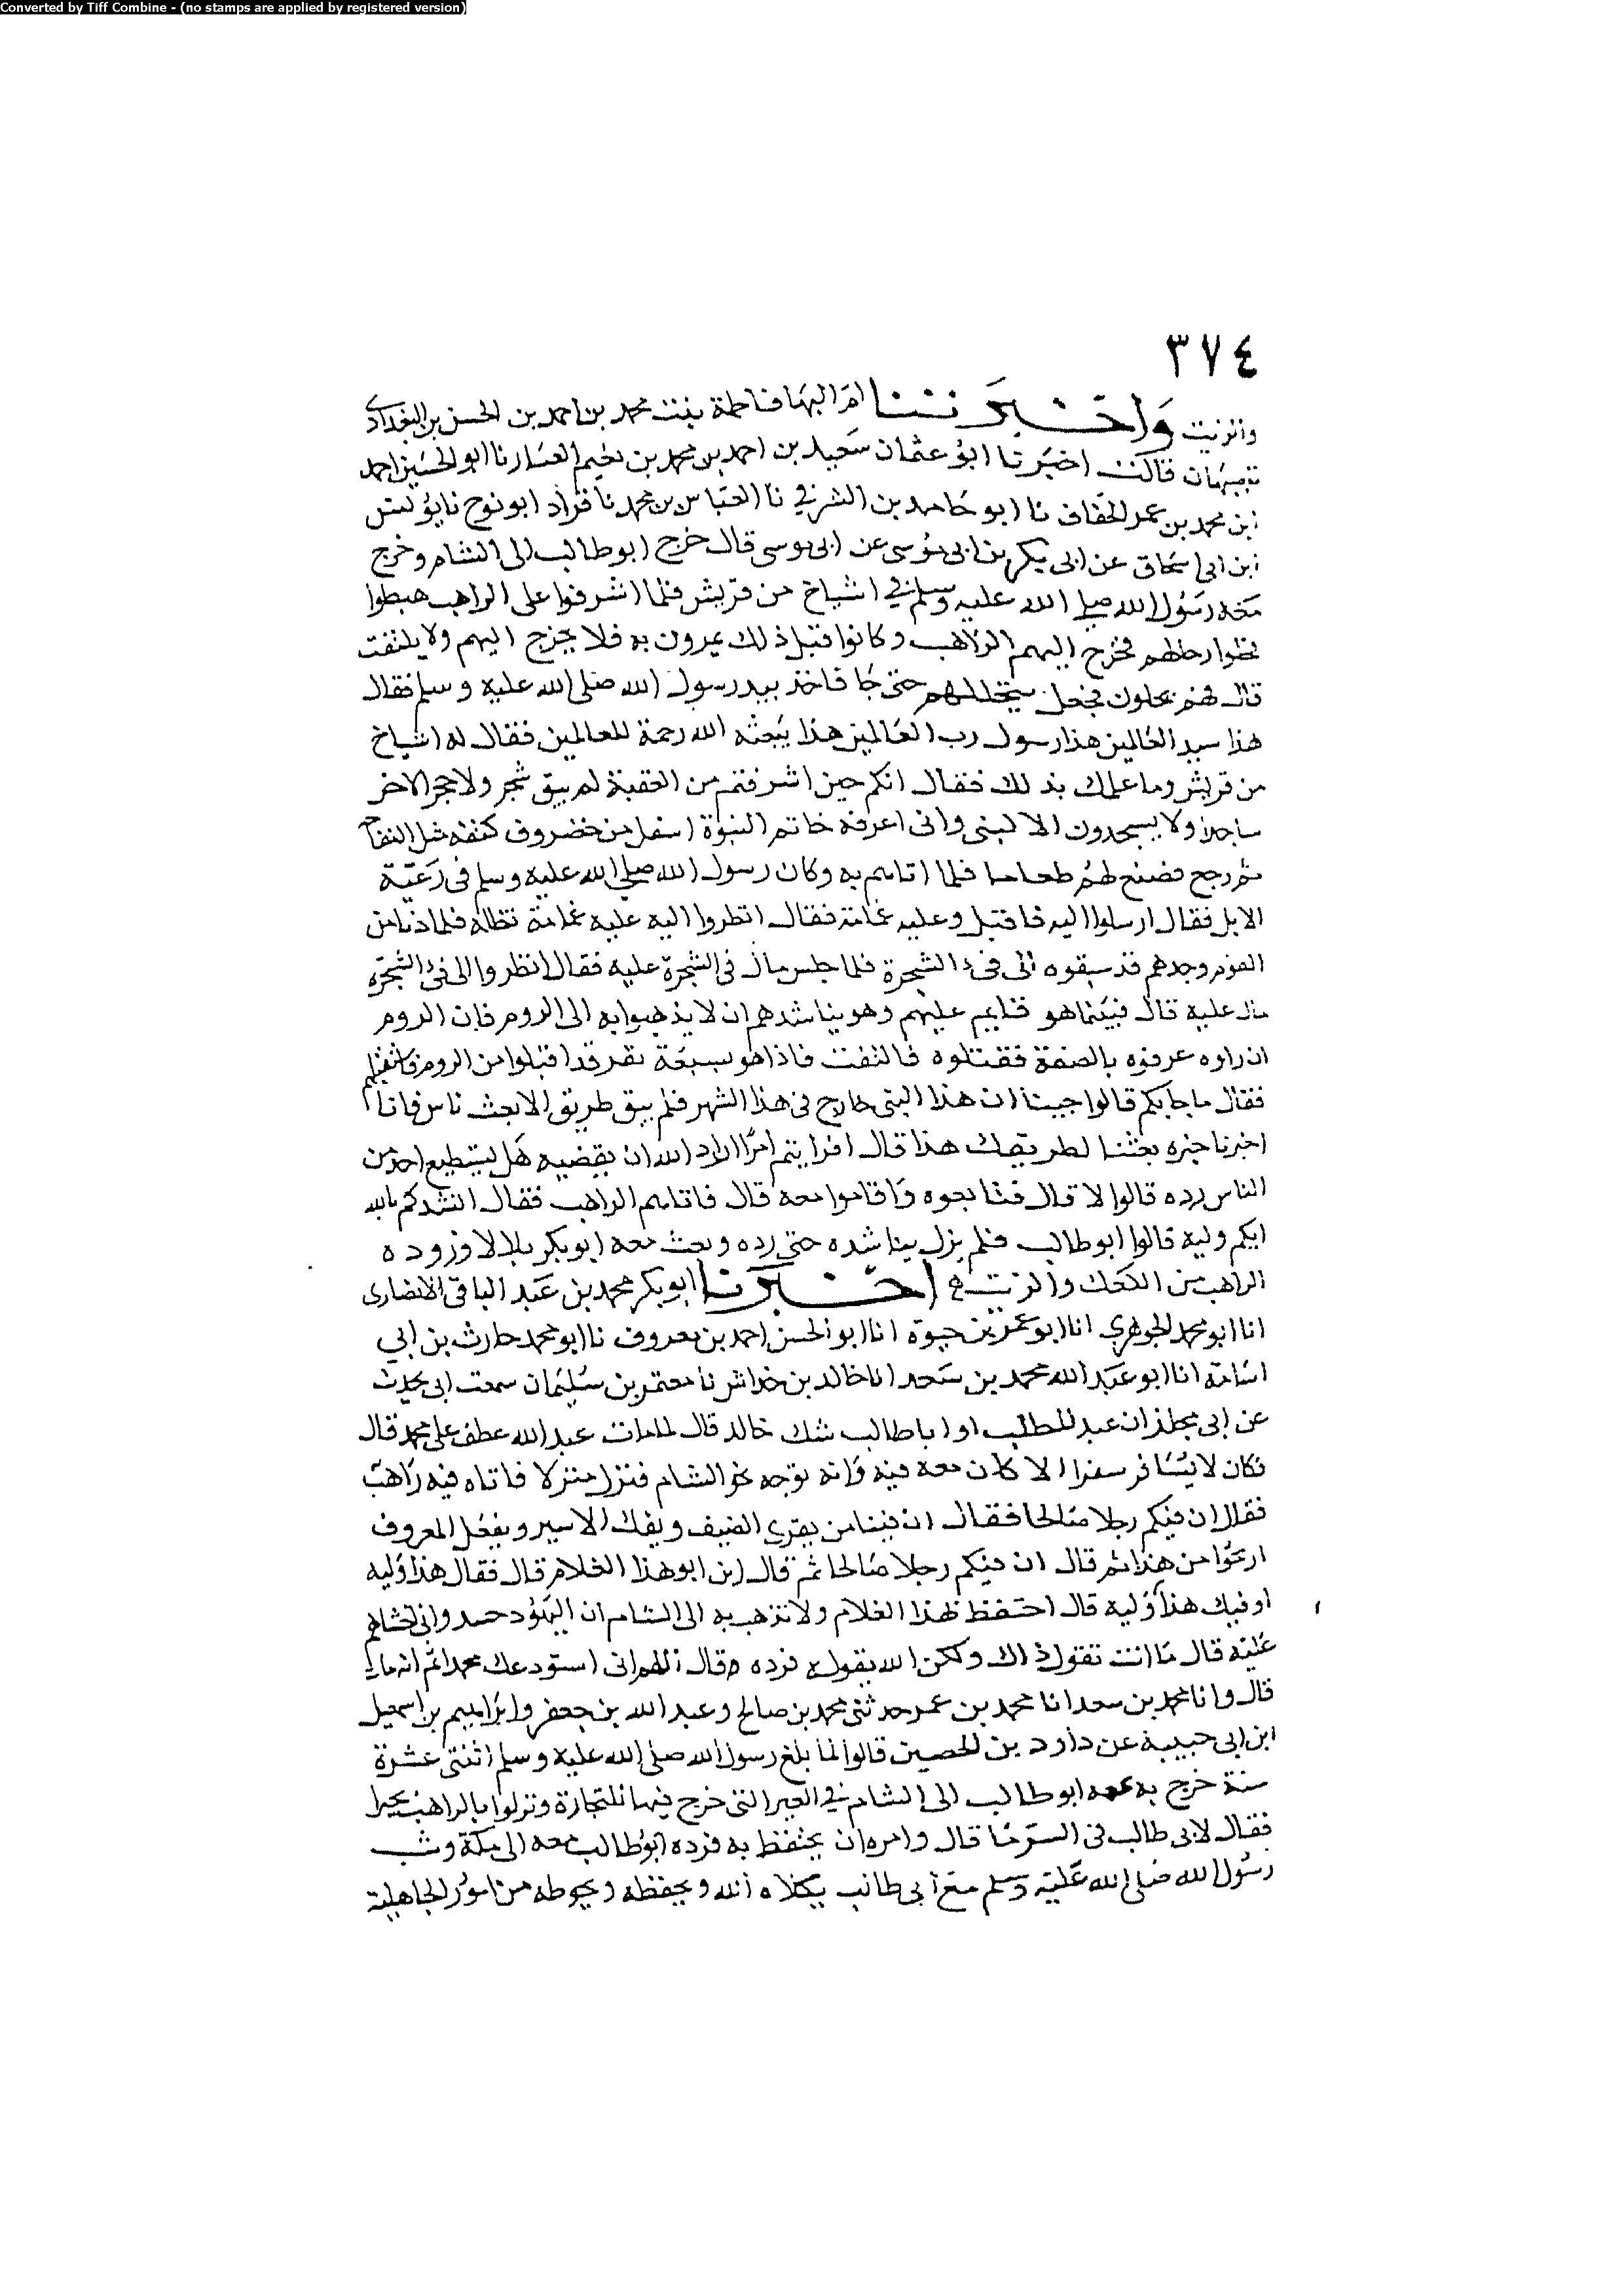 Converted by Tiff Combine - (no stamps are applied by registered version)
٣٧٤
والزيت وَاخبرتنا ام البها فاطمة بنت محمد بن احمد بن الحسن بن البغدادي
قالت اخبرنا ابو عثمان سعيد بن احمد بن محمد بن نعيم العيار نا ابو الحسين احمد
ابن محمد بن عمر الخفاف نا ابو حامد بن الشرقي نا العباس بن محمد نا قراد ابو نوح نا يونس
ابن ابي اسحاق عن ابي بكر بن ابي موسى عن ابي موسى قال خرج ابو طالب الى الشام وخرج
معه رسول الله صلى الله عليه وسلم في اشياخ من قريش فلما اشرفوا على الراهب هبطوا
فحطوا رحالهم فخرج اليهم الراهب وكانوا قبل ذلك يمرون به فلا يخرج اليهم ولا يلتفت
قال فهم يحلون فجعل يتخللهم حتى جا فاخذ بيد رسول الله صلى الله عليه وسلم فقال
هذا سيد العالمين هذا رسول رب العالمين هذا يبعثه الله رحمة للعالمين فقال له اشياخ
من قريش وما علمك بذلك فقال انكم حين اشرفتم من العقبة لم يبق شجر ولا حجر الا خر
ساجدا ولا يسجدون الا لنبي واني اعرفه خاتم النبوة اسفل من غضروف كتفه مثل التفاح
ثم رجع فصنع لهم طعاما فلما اتاهم به وكان رسول الله صلى الله عليه وسلم في رعية
الابل فقال ارسلوا اليه فاقبل وعليه غمامة فقال انظروا اليه عليه غمامة تظله فلما دنا من
القوم وجدهم قد سبقوه الى فئ الشجرة فلما جلس مال فئ الشجرة عليه فقال انظروا الى فئ الشجرة
مال عليه قال فبينما هو قايم عليهم وهو يناشدهم ان لا يذهبوا به الى الروم فان الروم
ان راوه عرفوه بالصفة فقتلوه فالتفت فاذا هو بسبعة نفر قد اقبلوا من الروم فاستقبلهم
فقال ما جا بكم قالوا جينا ان هذا النبي خارج في هذا الشهر فلم يبق طريق الا بعث ناس وانا
اخبرنا خبره بعثنا لطريقك هذا قال افرايتم امرا اراد الله ان يقضيه هل يستطيع احد من
الناس رده قالوا لا قال فتابعوه واقاموا معه قال فاتاهم الراهب فقال انشدكم بالله
ايكم وليه قالوا ابو طالب فلم يزل يناشده حتى رده وبعث معه ابو بكر بلالا وزوده
الراهب من الكعك والزيت اخبرنا ابو بكر محمد بن عبد الباقي الانصارى
انا ابو محمد الجوهري انا ابو عمر بن حيوة انا ابو الحسن احمد بن معروف نا ابو محمد حارث بن ابي
اسامة انا ابو عبد الله محمد بن سعد انا خالد بن خداش نا معتمر بن سليمان سمعت ابي يحدث
عن ابي مجلز ان عبد المطلب او ابا طالب شك خالد قال لما مات عبد الله عطف على محمد قال
فكان لا يسافر سفرا الا كان معه فيه وانه توجه نحو الشام فنزل منزلا فاتاه فيه راهب
فقال ان فيكم رجلا صالحا فقال ان فينا من يقري الضيف ويفك الاسير ويفعل المعروف
ارجوا من هذا ثم قال ان فيكم رجلا صالحا ثم قال اين ابو هذا الغلام قال فقال هذا وليه
او قيل هذا وليه قال احتفظ بهذا الغلام ولا تذهب به الى الشام ان اليهود حسد واني اخشاهم
عليه قال ما انت تقول ذاك ولكن الله يقوله فرده وقال اللهم اني استودعك محمدا ثم انه مات
قال وانا محمد بن سعد انا محمد بن عمر حدثني محمد بن صالح وعبد الله بن جعفر وابراهيم بن اسمعيل
ابن ابي حبيبة عن داود بن الحصين قالوا لما بلغ رسول الله صلى الله عليه وسلم اثنتي عشرة
سنة خرج به عمه ابو طالب الى الشام في العير التي خرج فيها للتجارة ونزلوا بالراهب بحيرا
فقال لابي طالب في السر ما قال وامره ان يحتفظ به فرده ابو طالب معه الى مكة وشب
رسول الله صلى الله عليه وسلم مع أبي طالب يكلاه الله ويحفظه ويحوطه من امور الجاهلية